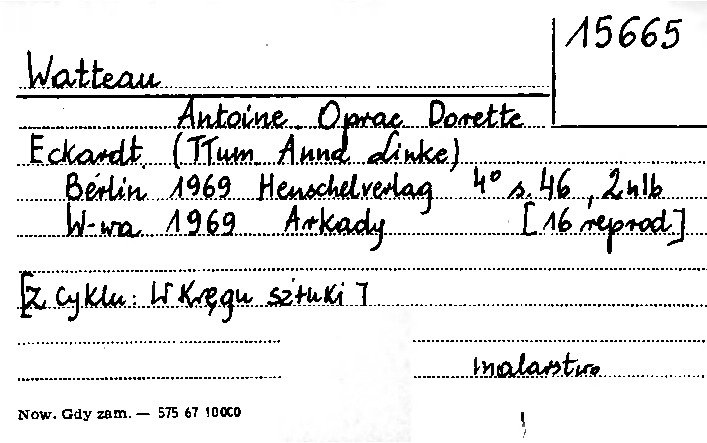 15665
Watteau
Antoine. Oprac Dorette
Eckardt. (Tłum. Anna Linke)
Berlin 1969 Henschelverlag 4° s. 46, 2nlb
W-wa 1969 Arkady [16 reprod.]
[Z cyklu: W Kręgu sztuki]
malarstwo
Now. Gdy zam. — 575 67 10000